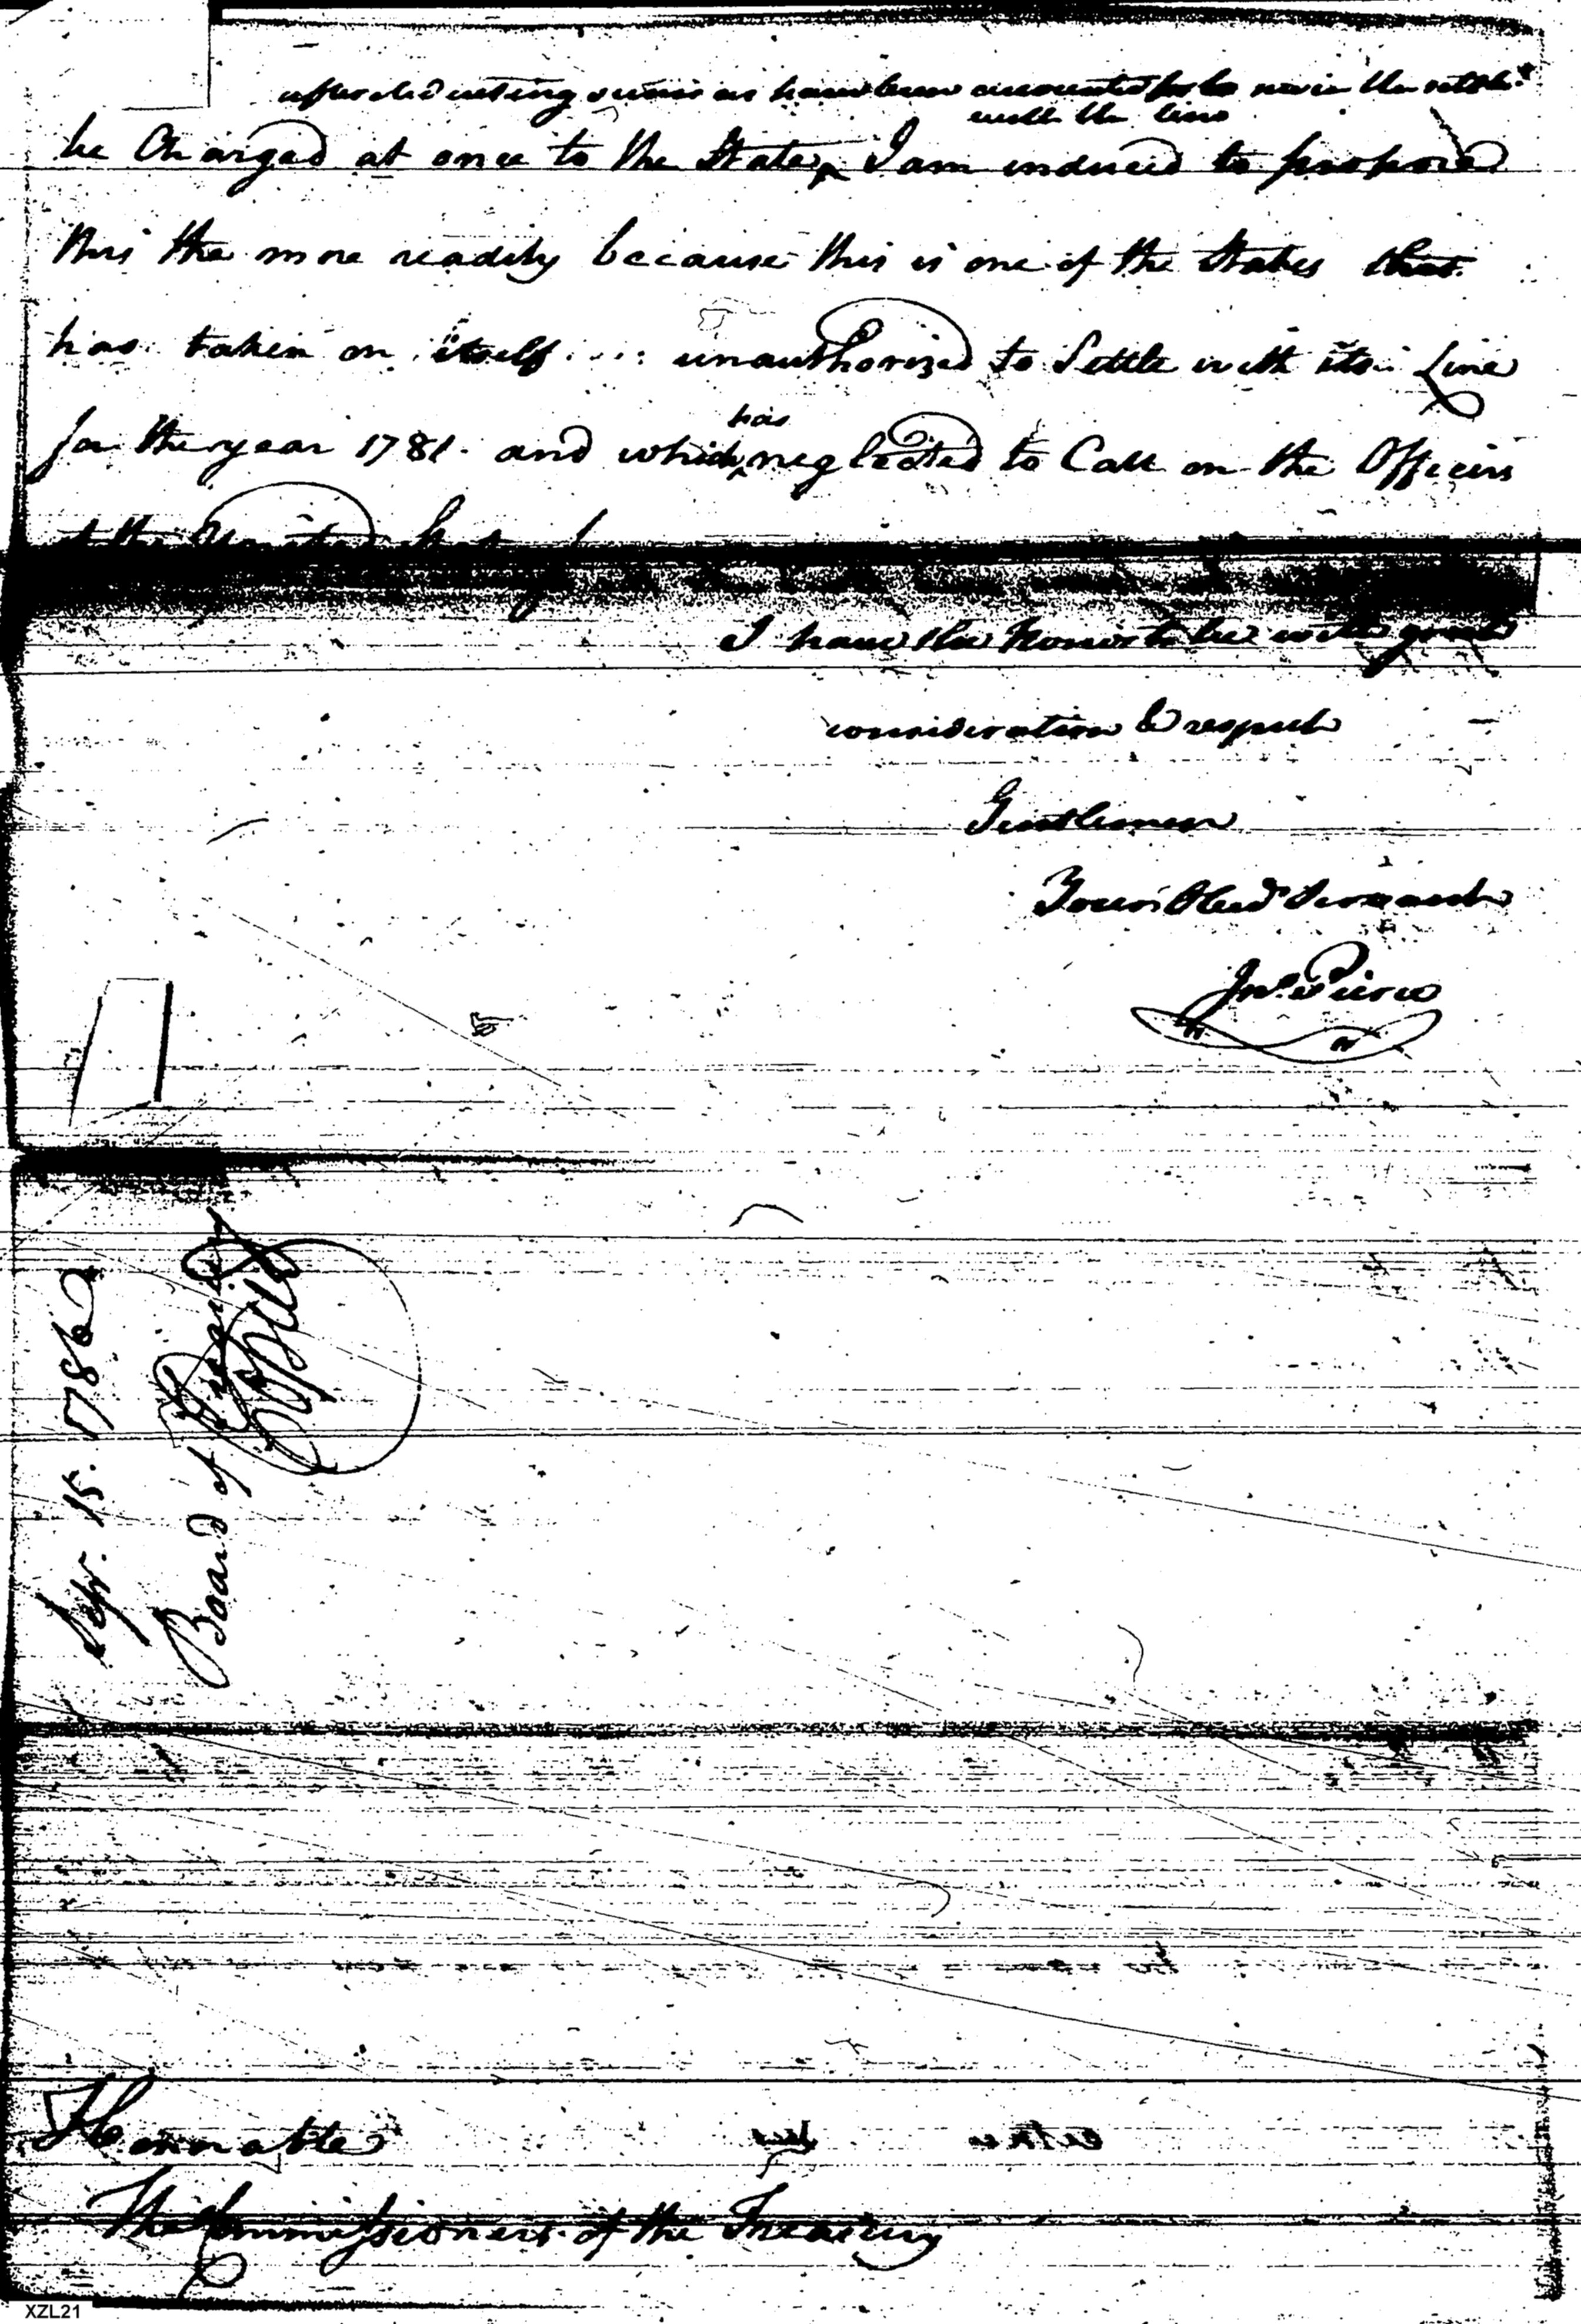 after deducting sums as have been accounted for to
with the line
be Charged at once to the State, I am induced to propose
this the more readily because this is one of the States that
has taken on itself unauthorized to Settle with its Line
has
for the year 1781. and which neglected to Call on the Officers
of the United
I have the honor to be with great
consideration & respect
Gentlemen
Your Obed Servant
Jno. Pierce
Sepr. 15. 1786
Board of
Honorable
The Commissioners of the Treasury
XZL21